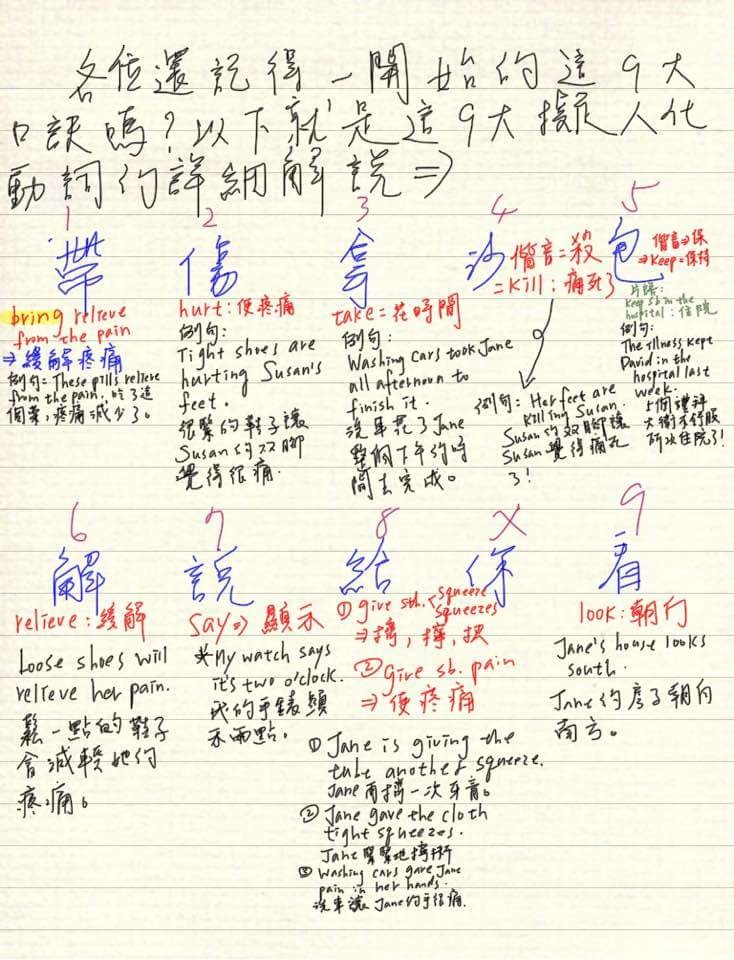 各位還記得一開始的這9大
口訣嗎?以下就是這9大擬人化
動詞的詳細解說⇒
1
帶
bring relieve
from the pain
⇒緩解疼痛
例句:These pills relieve
from the pain. 吃了這
個藥,疼痛減少了。
2
傷
hurt:使疼痛
例句:
Tight shoes are
hurting Susan's
feet.
很緊的鞋子讓
Susan的双腳
覺得很痛.
3
拿
take=花時間
例句:
Washing cars took Jane
all afternoon to
finish it.
洗車花了Jane
整個下午的時
間去完成。
4
沙
偕音=殺
=Kill:痛死了
例句:Her feet are
killing Susan.
Susan的双腳讓
Susan覺得痛死
了!
5
包
偕音⇒保
⇒Keep=保持
片語:
keep sb in the
hospital:住院
例句:
The illness kept
David in the
hospital last
week.
上個禮拜
大衛
住院了!
6
解
relieve:緩解
Loose shoes will
relieve her pain.
鬆一點的鞋子
會減輕她的
疼痛。
7
說
say⇒顯示
*My watch says
it's two o'clock.
我的手錶顯
示兩點。
8
給
①give sth. squeeze
squeezes
⇒擠,擰,把
②give sb. pain
⇒使疼痛
①Jane is giving the
tube another squeeze.
Jane再擠一次牙膏。
②Jane gave the cloth
tight squeezes.
Jane緊緊地擰
③Washing cars gave Jane
pain in her hands.
洗車讓Jane的手很痛.
X
保
9
看
look:朝向
Jane's house looks
south.
Jane的房子朝向
南方。